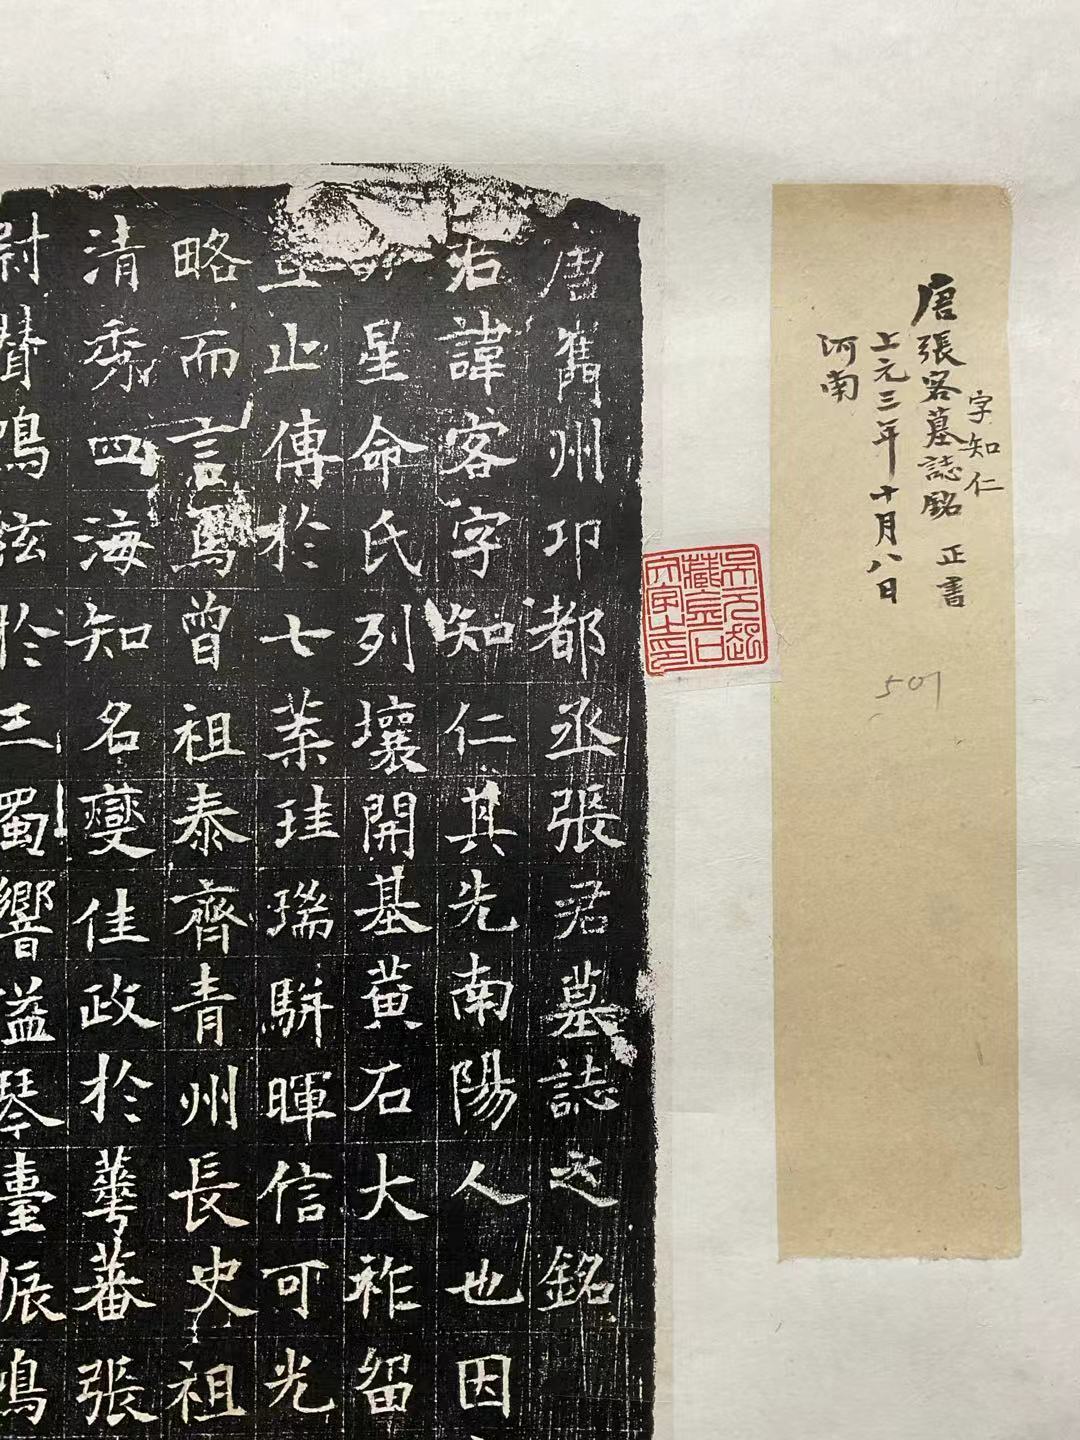 字知仁
唐張客墓誌銘 正書
上元三年十月八日
河南
藏金石
文字之印
唐巂州邛都丞張君墓誌之銘
君諱客字知仁其先南陽人也因
星命氏列壤開基黃石大祚留
止傳於七葉珪瑞駢暉信可光
略而言焉曾祖泰齊青州長史祖
清秀四海知名爕佳政於蕐蕃張
尉賛鳴弦於三蜀響溢琴臺振鳴